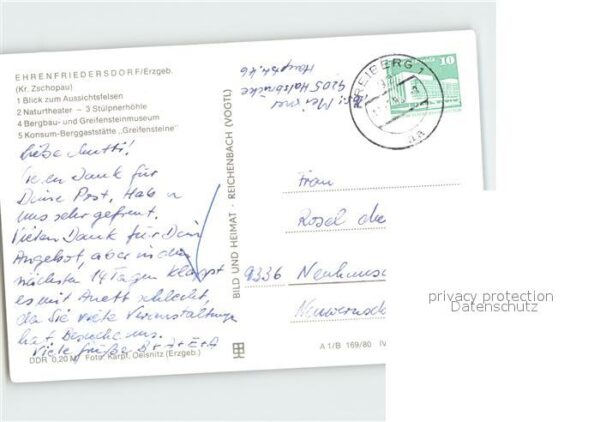 EHRENFRIEDERSDORF/Erzgeb.
(Kr. Zschopau)
1 Blick zum Aussichtsfelsen
2 Naturtheater – 3 Stülpnerhöhle
4 Bergbau- und Greifensteinmuseum
5 Konsum-Berggaststätte „Greifensteine"
Liebe Mutti!
Vielen Dank für
Deine Post. Hab
uns sehr gefreut.
Vielen Dank für Dein
Angebot, aber in den
nächsten 14 Tagen klappt
es mit Anett schlecht,
da Sie viele Veranstaltunge
hat. Besuche uns.
Viele Grüße B+A+E+A
DDR 0,20 M Foto: Karpf, Oelsnitz (Erzgeb.)
BILD UND HEIMAT · REICHENBACH (VOGTL)
9205 Halsbrücke
Hauptstr. 46
FREIBERG 1
10
Frau
Rosel
9336 Neuhausen
A 1/B 169/80 IV
privacy protection
Datenschutz